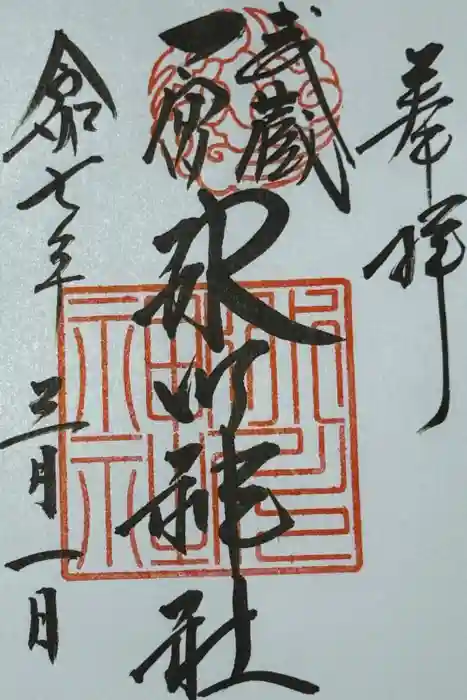 奉拝
武蔵
一宮
氷川神社
令和七年
三月一日
氷川
神社